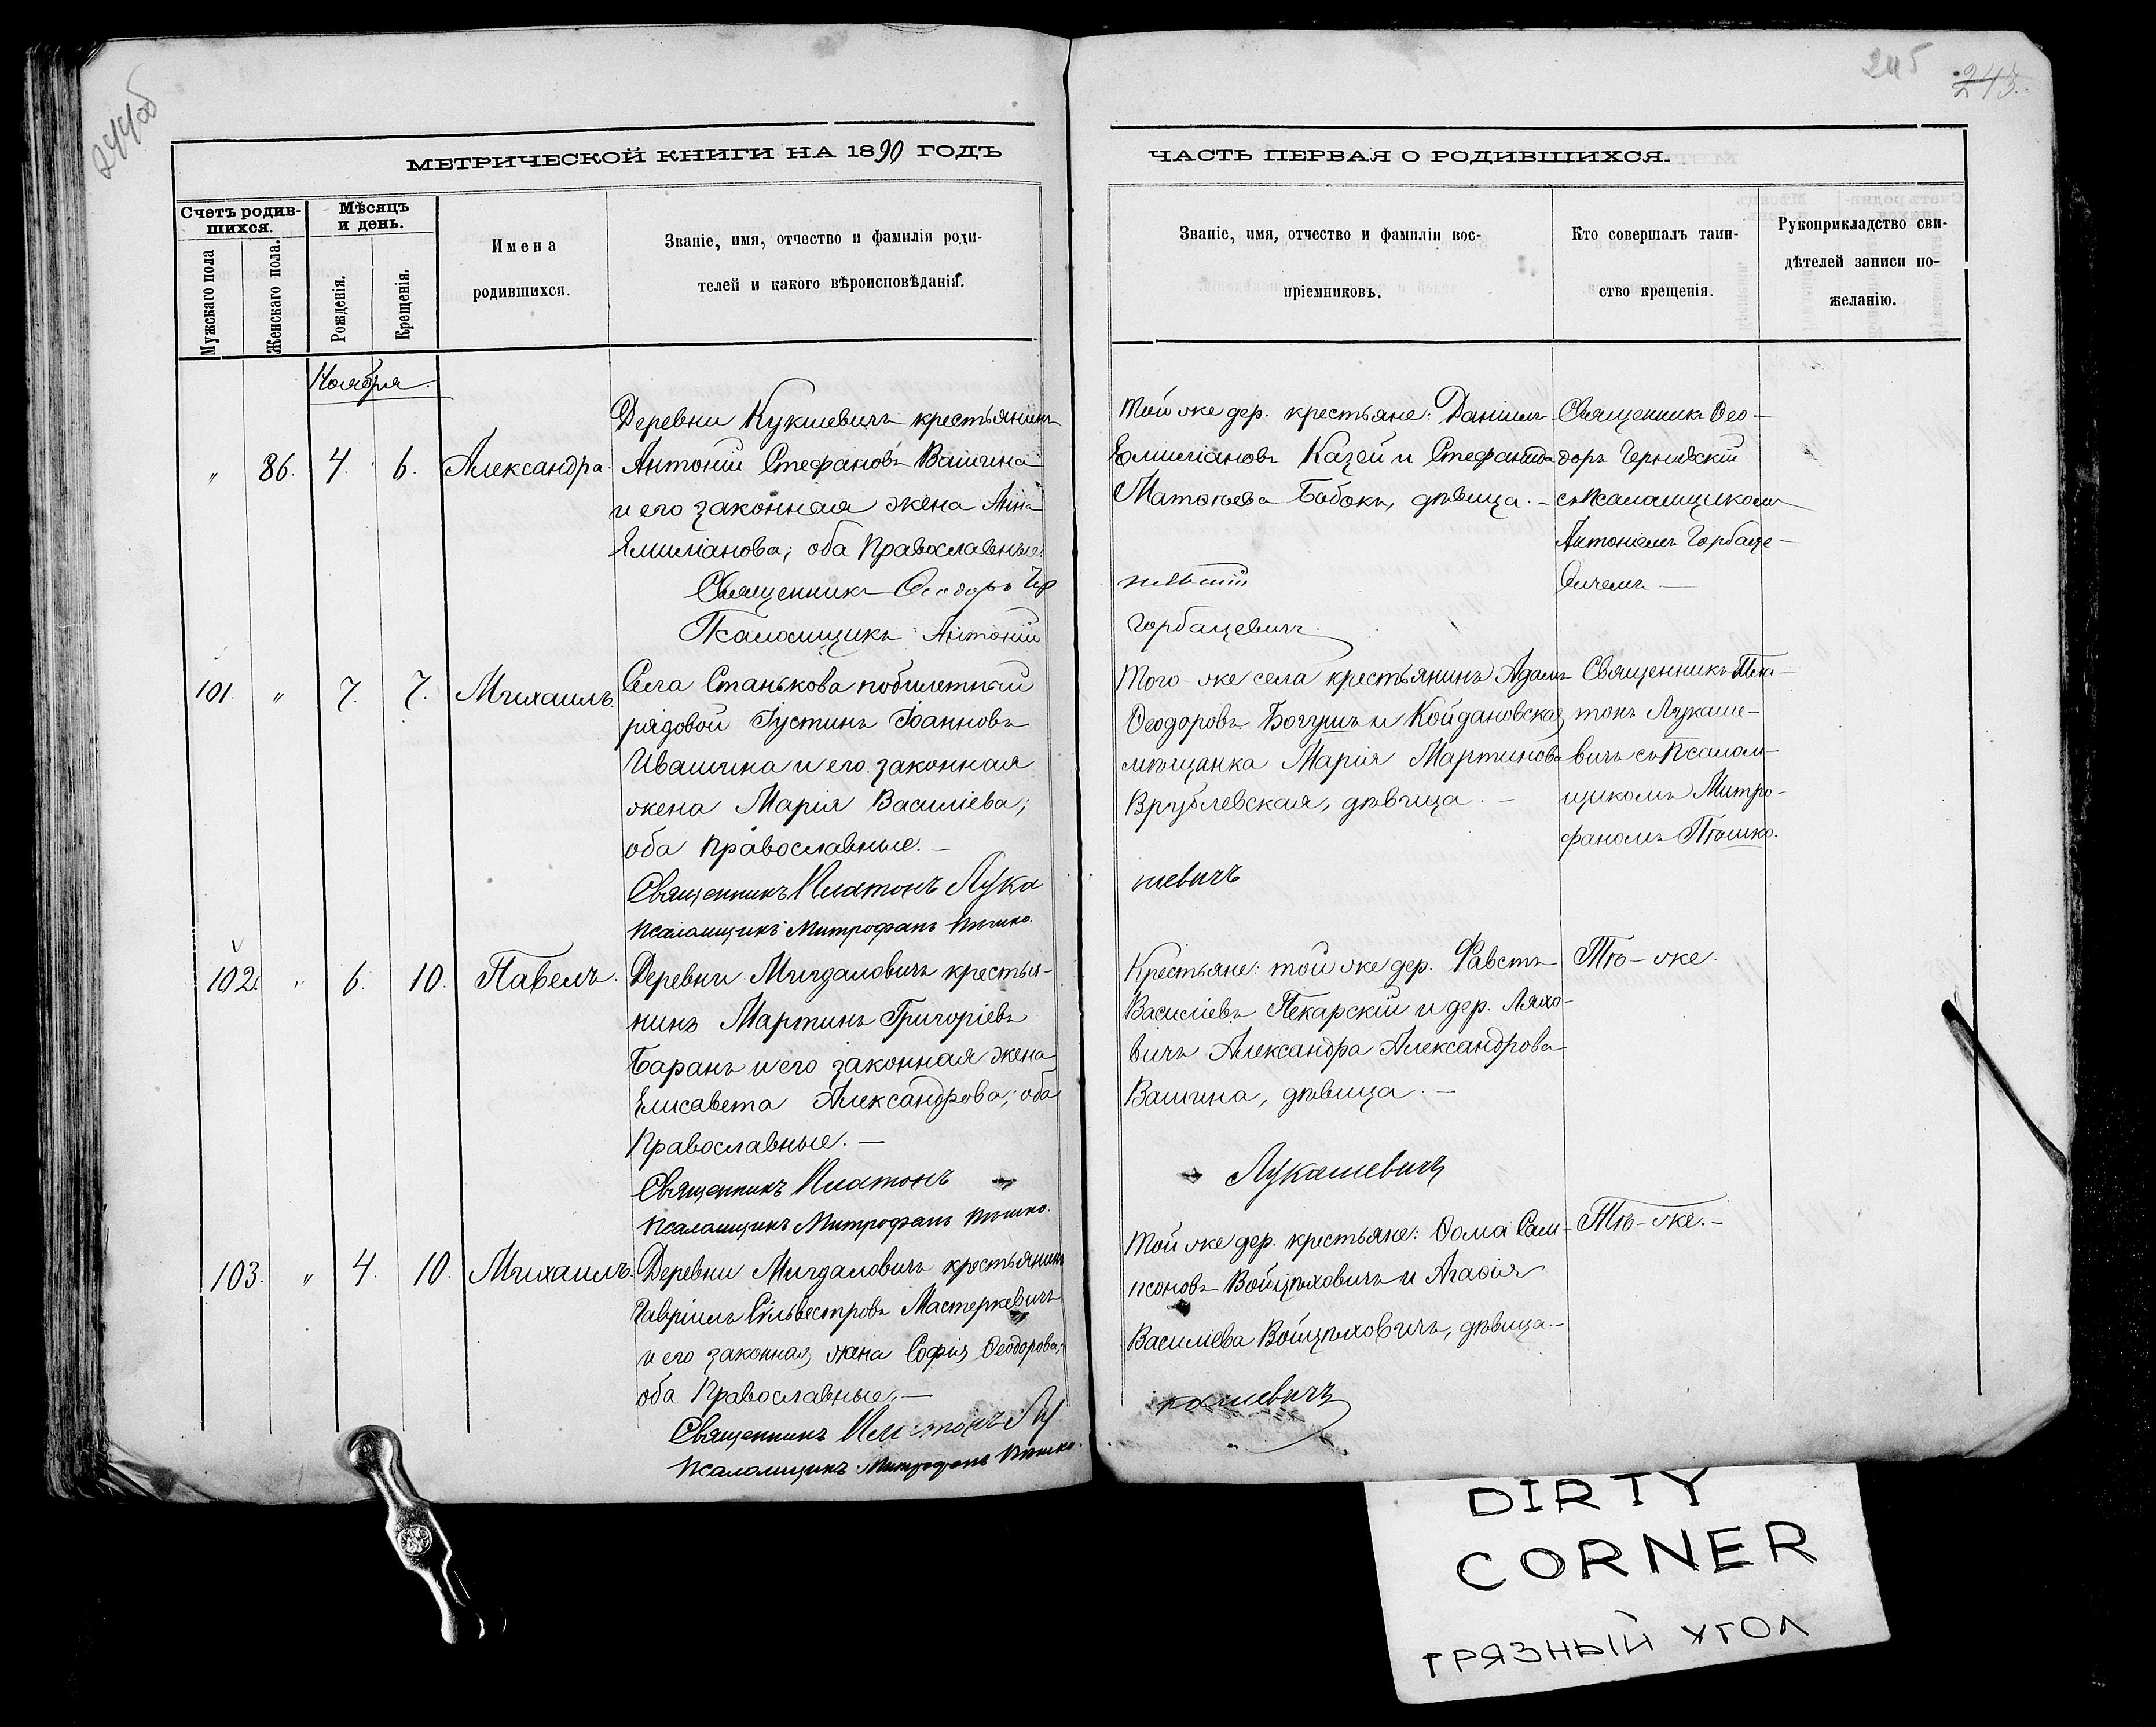 244об
245
243.
МЕТРИЧЕСКОЙ КНИГИ НА 1890 ГОДЪ
Счетъ родив-
шихся.
Мѣсяцъ
и день.
Мужскаго пола
Женскаго пола.
Рожденія.
Крещенія.
Имена
родившихся.
Званіе, имя, отчество и фамилія роди-
телей и какого вѣроисповѣданія.
Ноября
" 86. 4. 6. Александра.
Деревни Кукшевичъ крестьянинъ
Антоній Стефановъ Вашина
и его законная жена Анна
Емиліанова; оба Православные.
Священникъ Ѳеодоръ Чер
Псаломщикъ Антоній
101. " 7. 7. Михаилъ.
Села Станькова побилетный
рядовой Іустинъ Іоанновъ
Ивашина и его законная
жена Марія Василіева;
оба православные. —
Священникъ Платонъ Лука
Псаломщикъ Митрофанъ Пѣшко.
102. " 6. 10. Павелъ.
Деревни Мигдаловичъ крестья-
нинъ Мартинъ Григоріевъ
Баранъ и его законная жена
Елисавета Александрова; оба
Православные. —
Священникъ Платонъ
Псаломщикъ Митрофанъ Пѣшко.
103. " 4. 10. Михаилъ.
Деревни Мигдаловичъ крестьянинъ
Гавріилъ Сильвестровъ Мастеркевичъ
и его законная жена Софія Ѳеодорова;
оба Православные. —
Священникъ Платонъ Лу
Псаломщикъ Митрофанъ Пѣшко.
ЧАСТЬ ПЕРВАЯ О РОДИВШИХСЯ.
Званіе, имя, отчество и фамиліи вос-
пріемниковъ.
Кто совершалъ таин-
ство крещенія.
Рукоприкладство сви-
дѣтелей записи по-
желанію.
Той же дер. крестьяне: Даніилъ
Емиліановъ Казей и Стефанида
Матѳеева Бобокъ, дѣвица. —
нявскій
Горбацевичъ.
Священникъ Ѳео-
доръ Чернявскій
съ Псаломщикомъ
Антоніемъ Горбаце-
вичемъ —
Того-же села крестьянинъ Адамъ
Ѳеодоровъ Богушъ и Койдановская
мѣщанка Марія Мартинова
Врублевская, дѣвица. —
шевичъ
Священникъ Пла-
тонъ Лукаше-
вичъ съ Псалом-
щикомъ Митро-
фаномъ Пѣшко.
Крестьяне: той же дер. Фавстъ
Василіевъ Пекарскій и дер. Ляхо-
вичъ Александра Александрова
Вашина, дѣвица. —
Лукашевичъ
Тѣ-же.
Той же дер. крестьяне: Ѳома Сам-
псоновъ Войцѣховичъ и Агаѳія
Василіева Войцѣховичъ, дѣвица. —
кашевичъ
Тѣ-же. —
DIRTY
CORNER
ГРЯЗНЫЙ УГОЛ